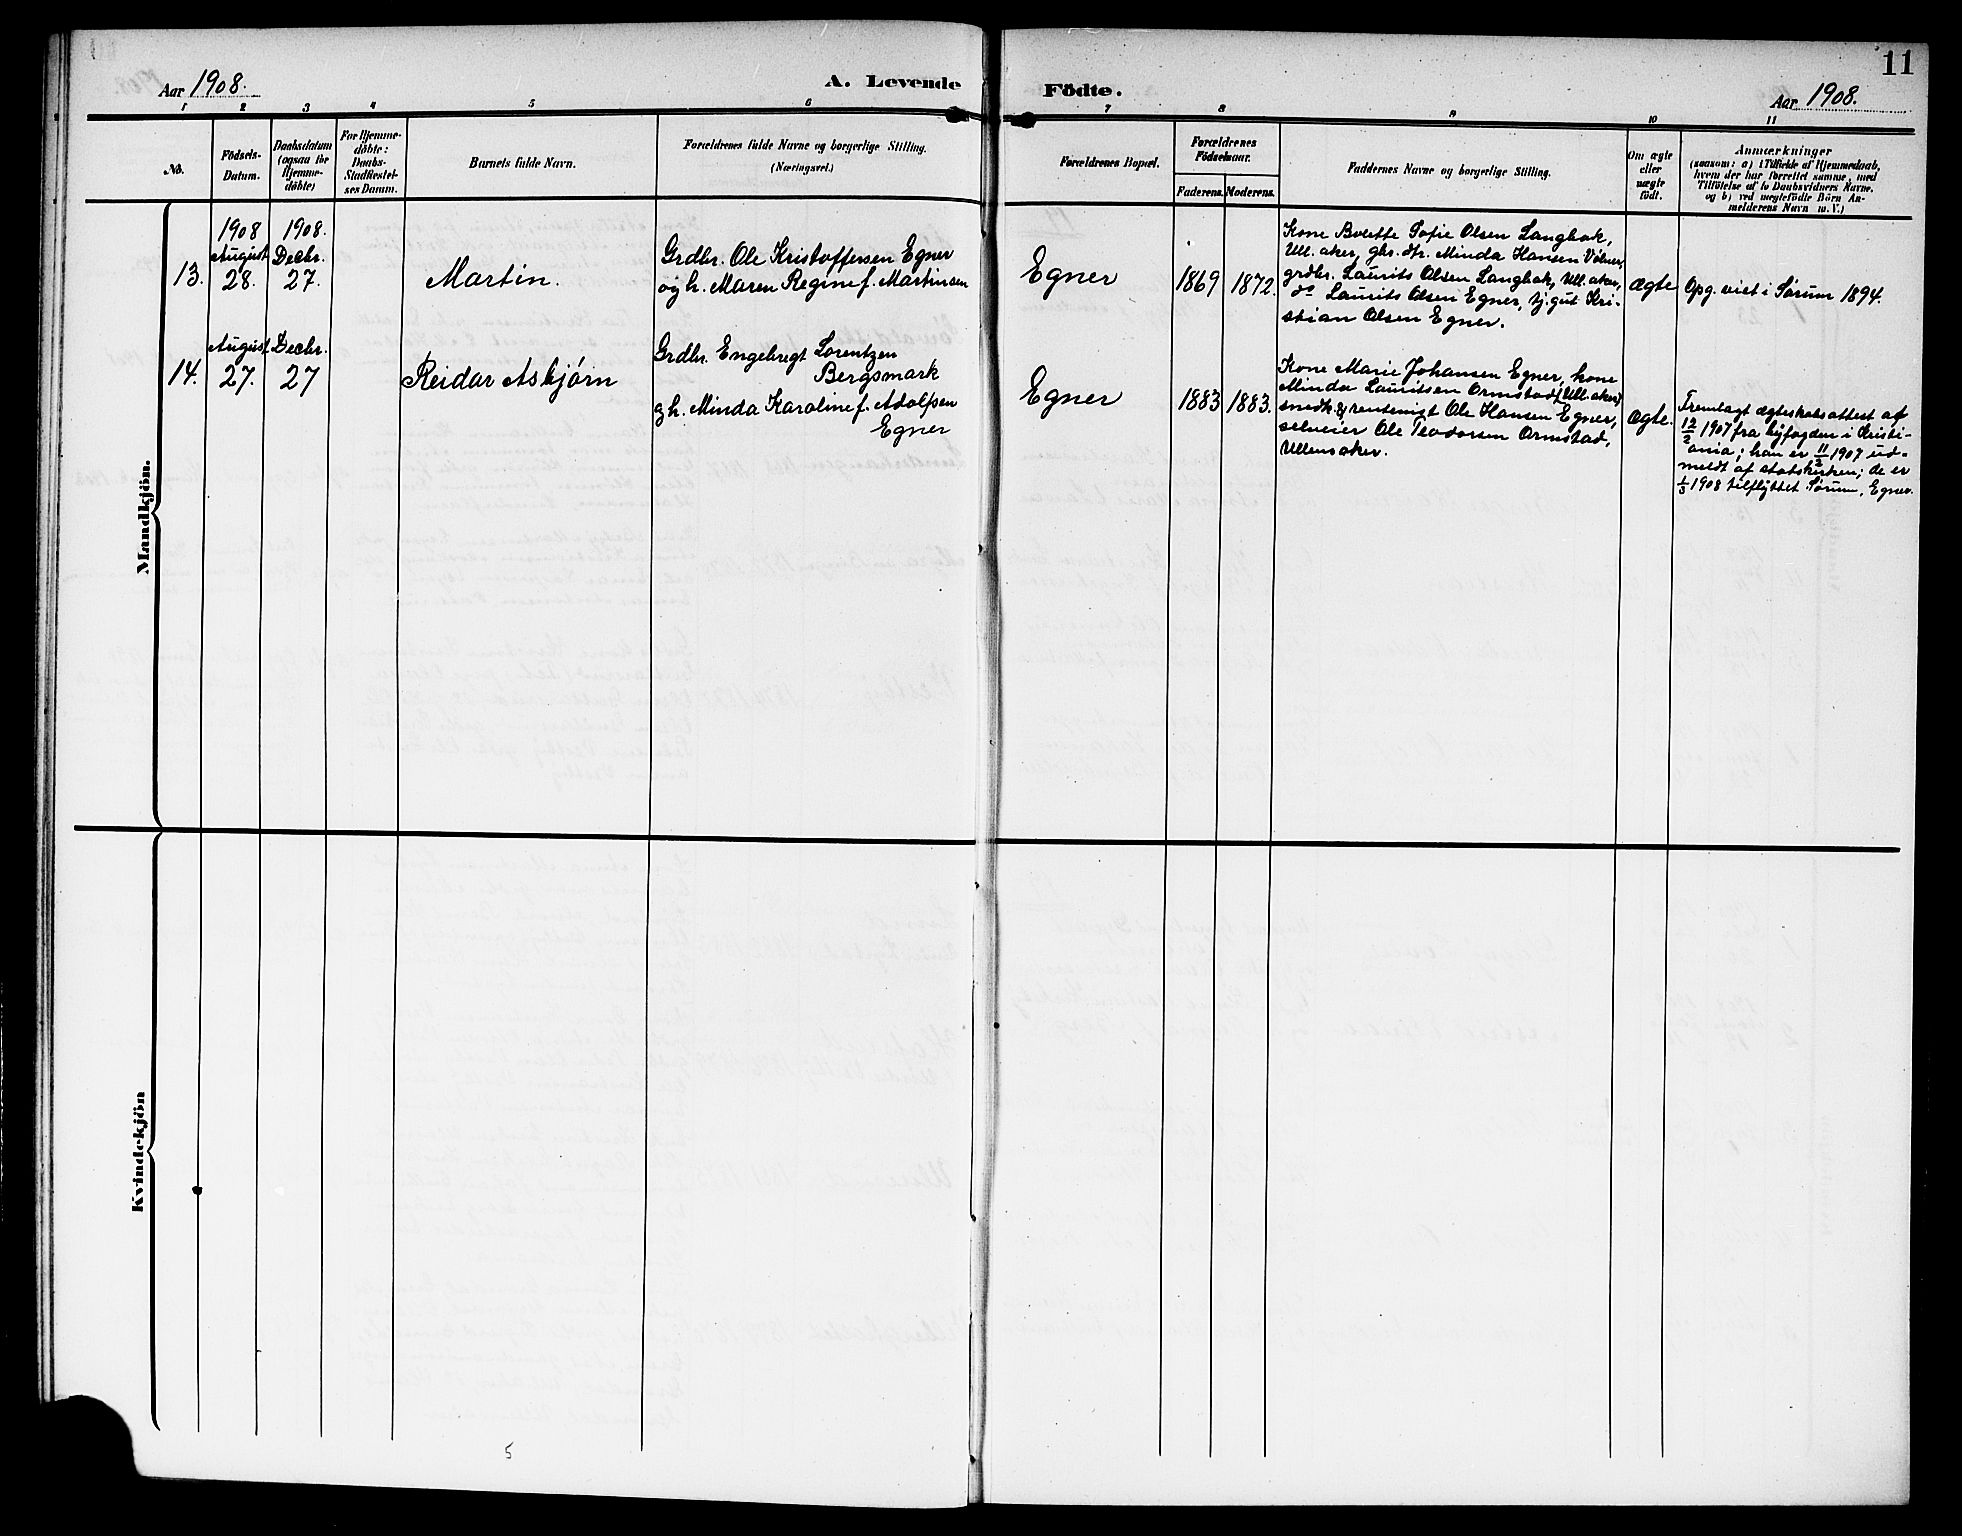 11
Aar 1908.
A. Levende Fødte.
Aar 1908.
1 2 3 4 5 6 7 8 9 10 11
No.
Födsels-
Datum.
Daabsdatum
(ogsaa for
Hjemme-
døbte)
For Hjemme-
døbte:
Daabs-
Stadfæstel-
ses Datum.
Barnets fulde Navn.
Forældrenes fulde Navne og borgerlige Stilling.
(Næringsvei.)
Forældrenes Bopæl.
Forældrenes
Födselsaar.
Faderens. Moderens.
Faddernes Navne og borgerlige Stilling.
Om ægte
eller
uægte
født.
Anmærkninger
(saasom: a) i Tilfælde af Hjemmedaab,
hvem der har forrettet samme, med
Tilföielse af to Daabsvidners Navne,
og b) ved uægtefødte Börn An-
melderens Navn m. V.)
Mandkjön.
1908 1908.
13. August 28. Decbr. 27.
Martin.
Grdbr. Ole Kristoffersen Egner
og h. Maren Regine f. Martinsen
Egner
1869 1872.
Kone Bolette Sofie Olsen Langbak,
Ull.aker, gbr. dtr. Minda Hansen
grdbr. Laurits Olsen Langbak, Ull.aker,
do Laurits Olsen Egner, tj.gut Kri-
stian Olsen Egner.
ægte
Opg. viet i Sørum 1894.
14. August 27. Decbr. 27
Reidar Asbjørn
Grdbr. Engebregt Lorentzen
Bergsmark
og h. Minda Karoline f. Adolfsen
Egner
Egner
1883 1883.
Kone Marie Johansen Egner, kone
Minda Lauritsen Ormstad (Ull.aker)
snedk. & rentenist Ole Hansen Egner,
selveier Ole Teodorsen Ormstad,
Ullensaker.
ægte.
Fremlagt ægteskabsattest af
12/2 1907 fra byfogden i Kristi-
ania; han er 11/2 1907 ud-
meldt af statskirken; de er
1/3 1908 tilflyttet Sørum, Egner.
Kvindekjön
5